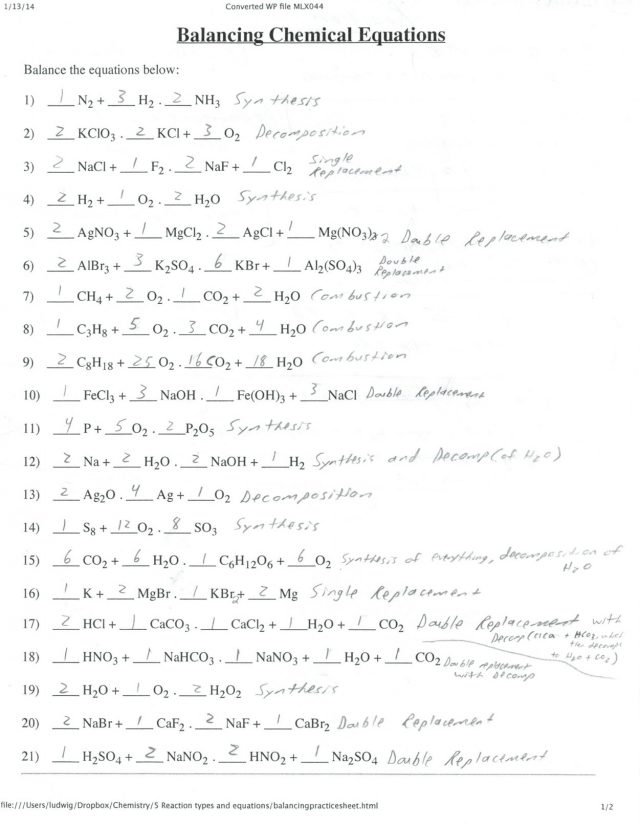 1/13/14 Converted WP file MLX044
Balancing Chemical Equations
Balance the equations below:
1) 1 N₂ + 3 H₂ . 2 NH₃ Synthesis
2) 2 KClO₃ . 2 KCl + 3 O₂ Decomposition
3) 2 NaCl + 1 F₂ . 2 NaF + 1 Cl₂ Single Replacement
4) 2 H₂ + 1 O₂ . 2 H₂O Synthesis
5) 2 AgNO₃ + 1 MgCl₂ . 2 AgCl + 1 Mg(NO₃)₂ Double Replacement
6) 2 AlBr₃ + 3 K₂SO₄ . 6 KBr + 1 Al₂(SO₄)₃ Double Replacement
7) 1 CH₄ + 2 O₂ . 1 CO₂ + 2 H₂O Combustion
8) 1 C₃H₈ + 5 O₂ . 3 CO₂ + 4 H₂O Combustion
9) 2 C₈H₁₈ + 25 O₂ . 16 CO₂ + 18 H₂O Combustion
10) 1 FeCl₃ + 3 NaOH . 1 Fe(OH)₃ + 3 NaCl Double Replacement
11) 4 P + 5 O₂ . 2 P₂O₅ Synthesis
12) 2 Na + 2 H₂O . 2 NaOH + 1 H₂ Synthesis and Decomp (of H₂O)
13) 2 Ag₂O . 4 Ag + 1 O₂ Decomposition
14) 1 S₈ + 12 O₂ . 8 SO₃ Synthesis
15) 6 CO₂ + 6 H₂O . 1 C₆H₁₂O₆ + 6 O₂ Synthesis of everything, decomposition of
H₂O
16) 1 K + 2 MgBr . 1 KBr₂ + 2 Mg Single Replacement
17) 2 HCl + 1 CaCO₃ . 1 CaCl₂ + 1 H₂O + 1 CO₂ Double Replacement with
Decomp
to H₂O + CO₂)
18) 1 HNO₃ + 1 NaHCO₃ . 1 NaNO₃ + 1 H₂O + 1 CO₂ Double replacement
with Decomp
19) 2 H₂O + 1 O₂ . 2 H₂O₂ Synthesis
20) 2 NaBr + 1 CaF₂ . 2 NaF + 1 CaBr₂ Double Replacement
21) 1 H₂SO₄ + 2 NaNO₂ . 2 HNO₂ + 1 Na₂SO₄ Double Replacement
file:///Users/ludwig/Dropbox/Chemistry/S Reaction types and equations/balancingpracticesheet.html 1/2